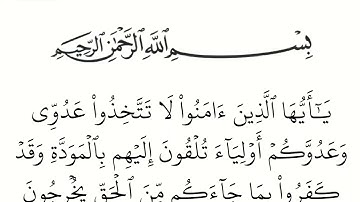 بِسْمِ ٱللَّهِ ٱلرَّحْمَٰنِ ٱلرَّحِيمِ
يَٰٓأَيُّهَا ٱلَّذِينَ ءَامَنُوا۟ لَا تَتَّخِذُوا۟ عَدُوِّى
وَعَدُوَّكُمْ أَوْلِيَآءَ تُلْقُونَ إِلَيْهِم بِٱلْمَوَدَّةِ وَقَدْ
كَفَرُوا۟ بِمَا جَآءَكُم مِّنَ ٱلْحَقِّ يُخْرِجُونَ